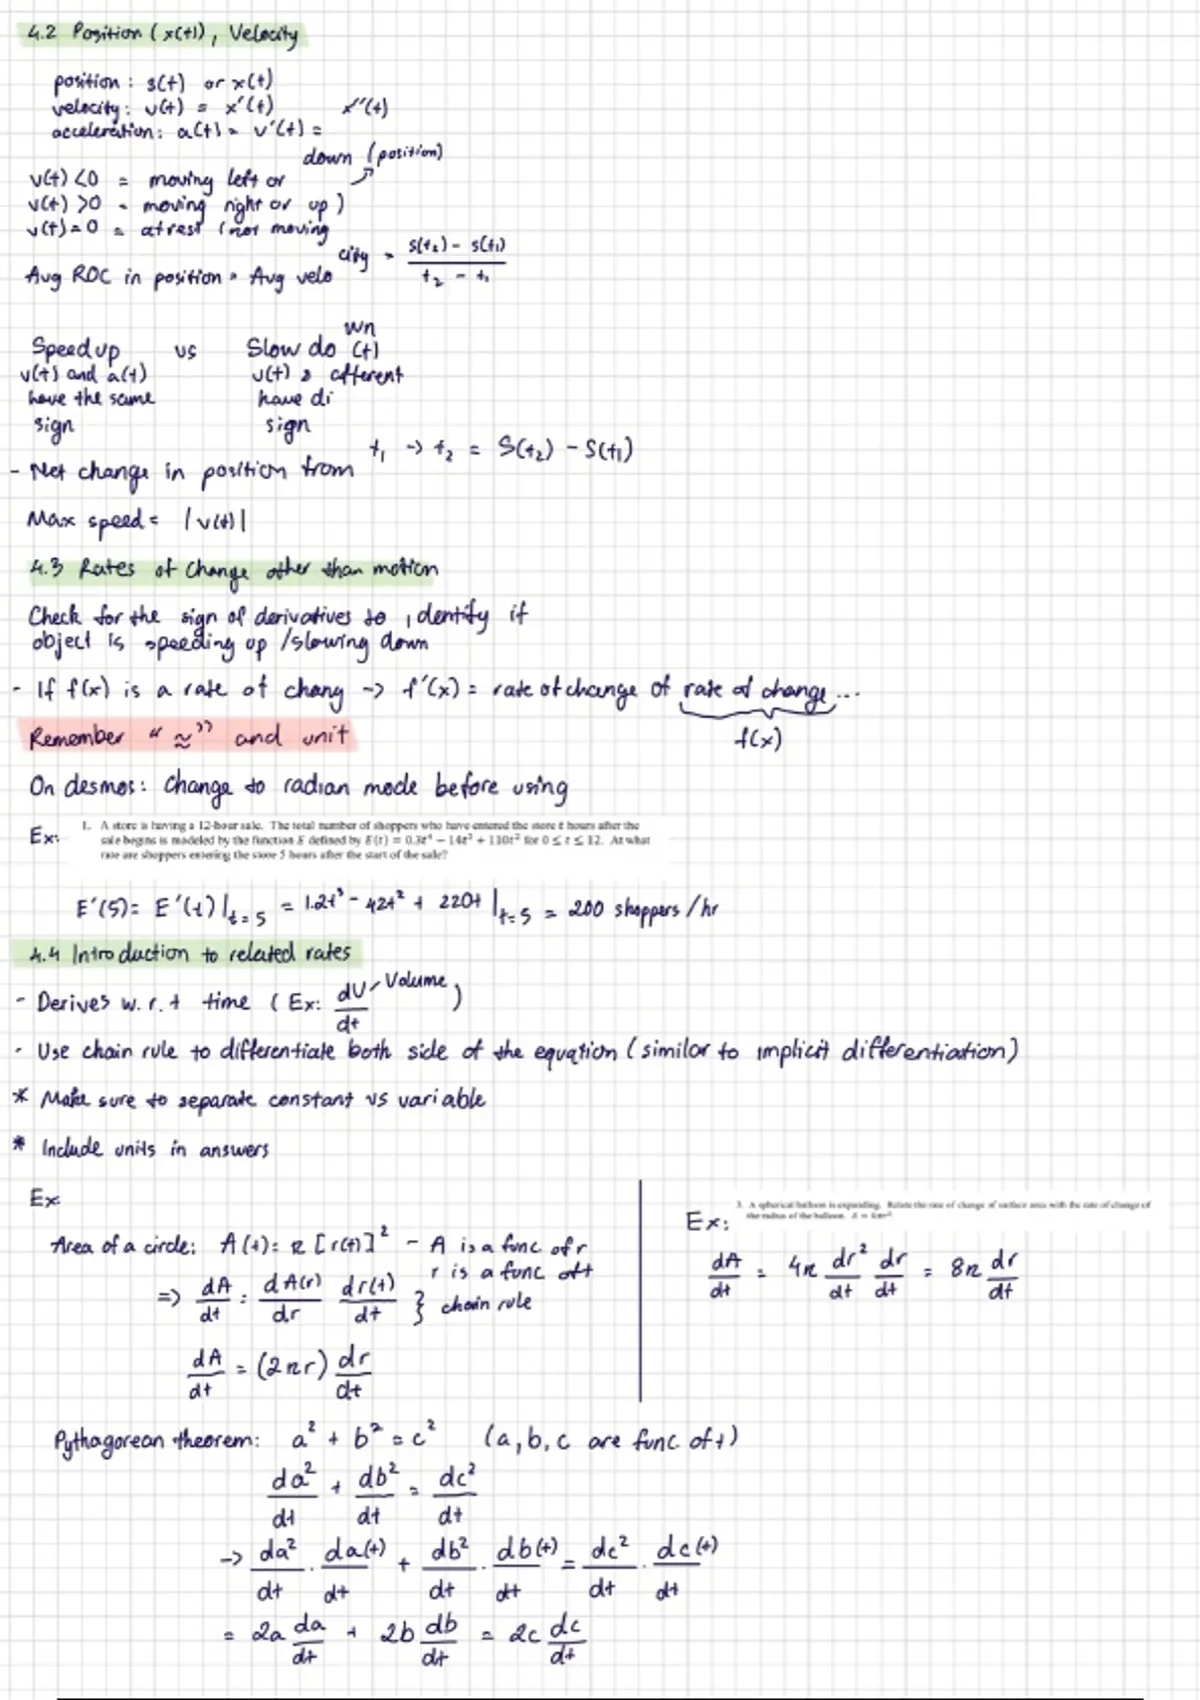 4.2 Position (x(t)), Velocity
position : s(t) or x(t)
velocity : v(t) = x'(t)
x''(t)
acceleration : a(t) = v'(t) =
down (position)
v(t) <0 = moving left or
v(t) >0 = moving right or up )
v(t) = 0 = at rest (not moving
Avg ROC in position = Avg velo city = s(t₂) - s(t₁) / t₂ - t₁
Speed up vs Slow do wn
v(t) and a(t) v(t) & a (t)
have the same have di fferent
sign sign
- Net change in position from t₁ -> t₂ = S(t₂) - S(t₁)
Max speed = |v(t)|
4.3 Rates of Change other than motion
Check for the sign of derivatives to identify if
object is speeding up /slowing down
- If f(x) is a rate of chang -> f'(x) = rate of change of rate of change ...
f(x)
Remember "≈" and unit
On desmos : Change to radian mode before using
Ex: 1. A store is having a 12-hour sale. The total number of shoppers who have entered the store t hours after the
sale begins is modeled by the function E defined by E(t) = 0.3t⁴ − 14t³ + 110t² for 0 ≤ t ≤ 12. At what
rate are shoppers entering the store 5 hours after the start of the sale?
E'(5) = E'(t)|t=5 = 1.2t³ - 42t² + 220t |t=5 = 200 shoppers / hr
4.4 Introduction to related rates
- Derives w.r.t time ( Ex: dV/dt Volume )
- Use chain rule to differentiate both side of the equation (similar to implicit differentiation)
* Make sure to separate constant vs variable
* Include units in answers
Ex
Area of a circle: A(t) = π [r(t)]² - A is a func of r
r is a func of t
=> dA/dt = dA(r)/dr dr(t)/dt } chain rule
dA/dt = (2πr) dr/dt
Ex: 3. A spherical balloon is expanding. Relate the rate of change of surface area with the rate of change of
the radius of the balloon. A = 4πr²
dA/dt = 4π dr²/dt dr/dt = 8π dr/dt
Pythagorean theorem: a² + b² = c² (a, b, c are func of t)
da²/dt + db²/dt = dc²/dt
-> da²/dt · da(t)/dt + db²/dt · db(t)/dt = dc²/dt · dc(t)/dt
= 2a da/dt + 2b db/dt = 2c dc/dt